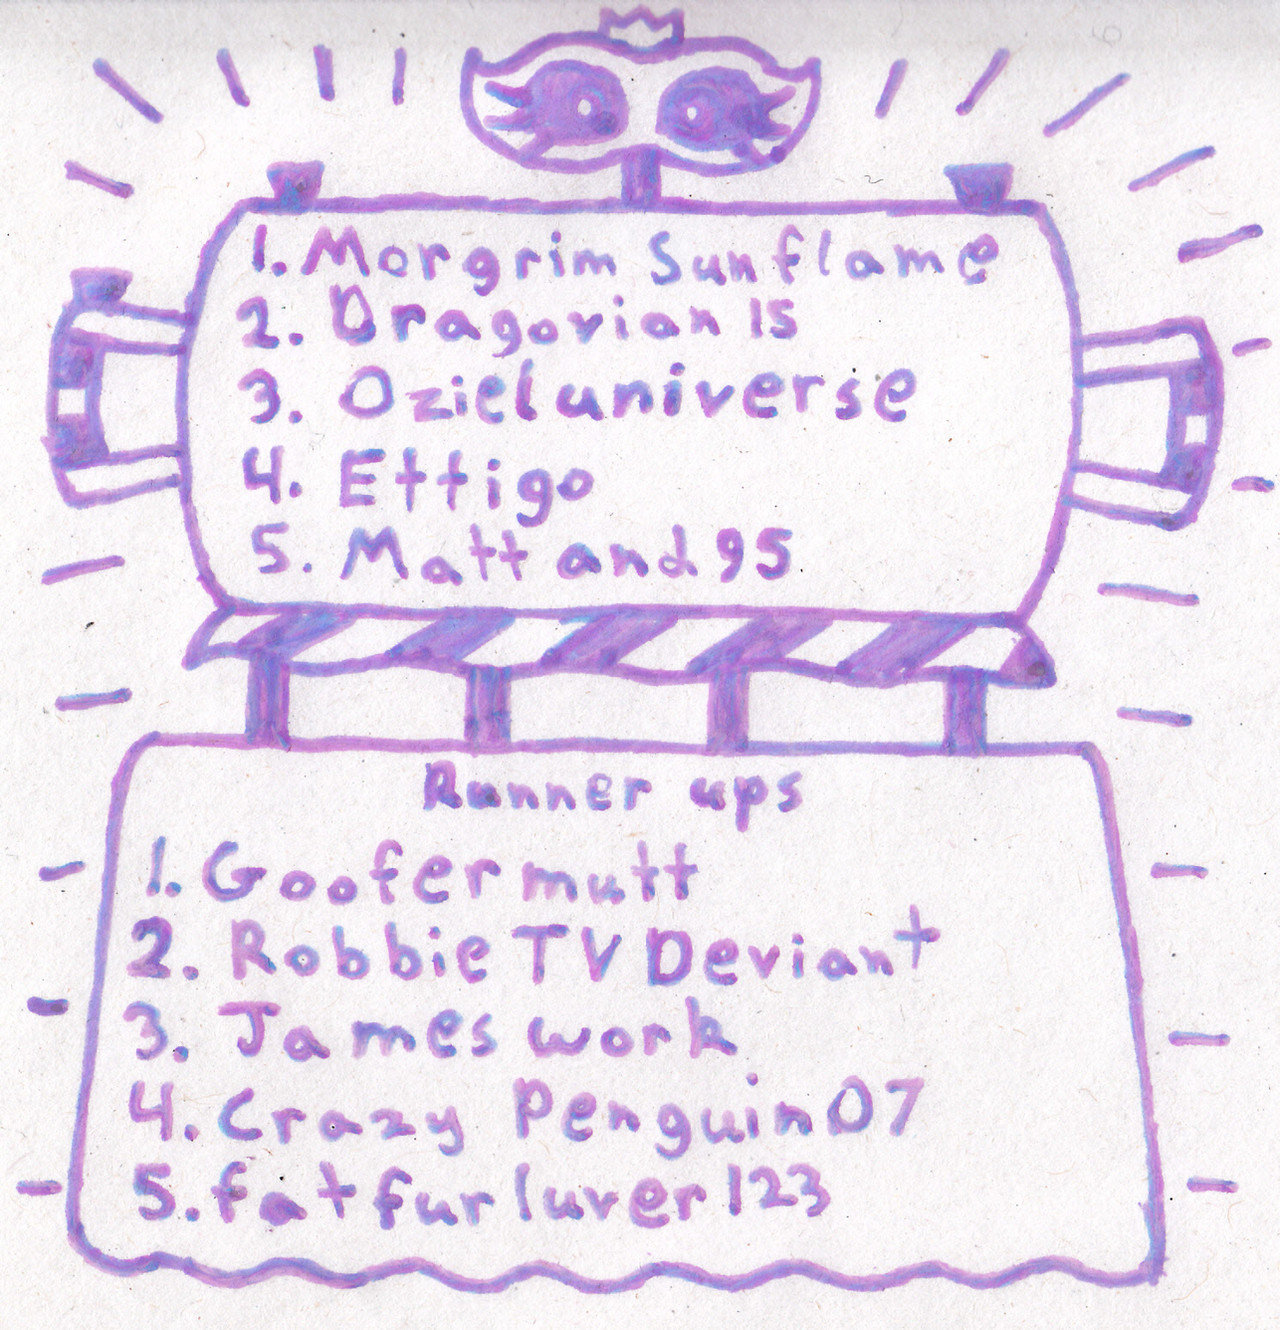 1. Morgrim Sunflame
2. Dragovian 15
3. Oziel universe
4. Ettigo
5. Matt and 95
Runner ups
1. Goofer mutt
2. Robbie TV Deviant
3. James work
4. Crazy Penguin07
5. fat fur luver 123